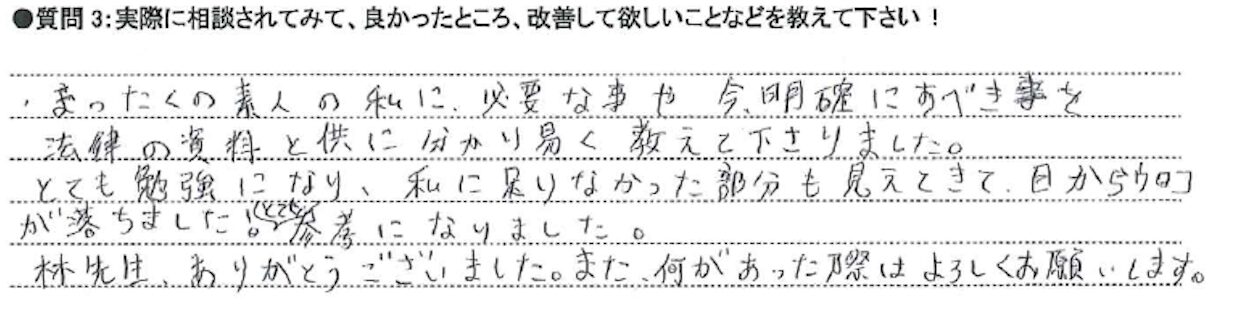 ●質問3:実際に相談されてみて、良かったところ、改善して欲しいことなどを教えて下さい！
・まったくの素人の私に、必要な事や今、明確にすべき事を
法律の資料と供に分かり易く教えて下さりました。
とても勉強になり、私に足りなかった部分も見えてきて、目からウロコ
が落ちました！(とても)参考になりました。
林先生、ありがとうございました。また、何があった際はよろしくお願いします。